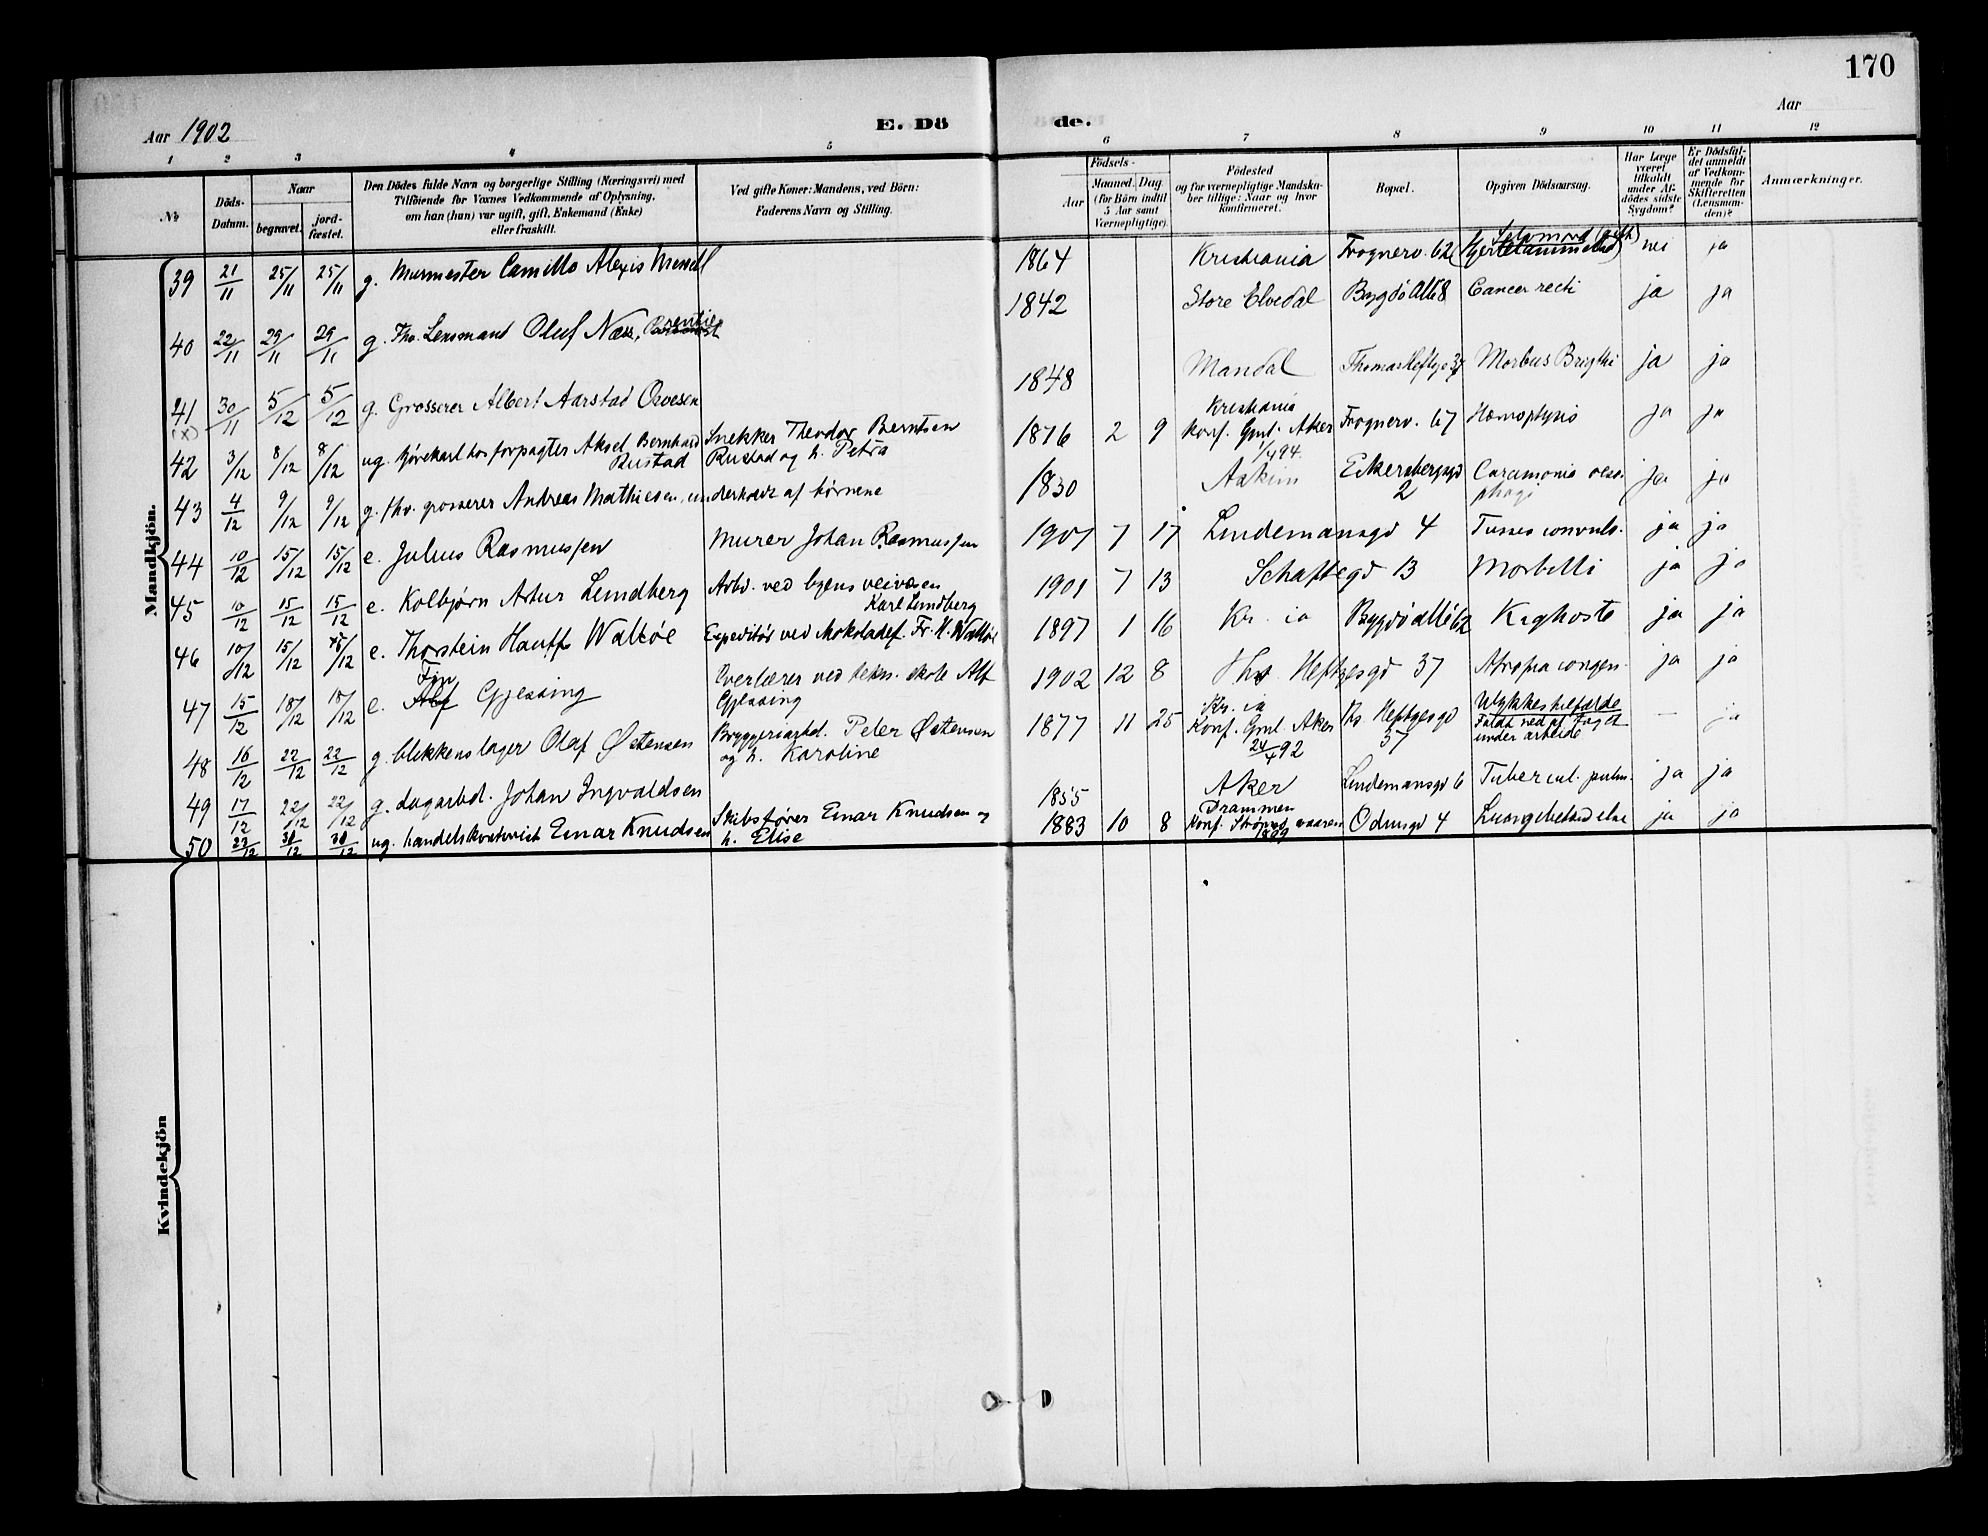 170
Aar 1902
E. Dö
de.
Aar
1 2 3 4 5 6 7 8 9 10 11 12
No
Döds-
Datum.
Naar
begravet.
jord-
fæstet.
Den Dödes fulde Navn og borgerlige Stilling (Næringsvei) med
Tilföiende for Voxnes Vedkommende af Oplysning,
om han (hun) var ugift, gift, Enkemand (Enke)
eller fraskilt.
Ved gifte Koner: Mandens, ved Börn:
Faderens Navn og Stilling.
Födsels-
Aar
Maaned. Dag.
(for Börn indtil
5 Aar samt
Værnepligtige)
Födested
og for værnepligtige Mandska-
ber tillige: Naar og hvor
konfirmeret.
Bopæl.
Opgiven Dödsaarsag.
Har Læge
været
tilkaldt
under Af-
dödes sidste
Sygdom?
Er Dödsfal-
det anmeldt
af Vedkom-
mende for
Skifteretten
(Lensman-
den)?
Anmærkninger.
Mandkjön.
39 21/11 25/11 25/11 g. Murmester Camillo Alexis 1864 Kristiania Frognerv. 62 Selvmord (gift) nei ja
40 22/11 29/11 29/11 g. Fhv. Lensmand Oluf Næss, Rentier 1842 Store Elvedal Bygdö Allé 8 Cancer recti ja ja
41 30/11 5/12 5/12 g. Grosserer Albert Aarstad Ovesen 1848 Mandal Thomas Heftyesgd 37 Morbus Brigthi ja ja
42 3/12 8/12 8/12 ug. kjørekarl hos forpagter Aksel Bernhard
Rustad
Snekker Theodor Berntsen
Rustad og h. Petra
1876 2 9 Kristiania
Konf. Gml. Aker
1/4 94.
Frognerv. 67 Hæmoptysis ja ja
43 4/12 9/12 9/12 g. fhv. grosserer Andreas Mathiesen, underholdt af børnene 1830 Askim Eckersbergsgd
2
oeso-
phagi
ja ja
44 10/12 15/12 15/12 e. Julius Rasmussen Murer Johan Rasmussen 1901 7 17 Lindemansgd 4 Tussis convuls. ja ja
45 10/12 15/12 15/12 e. Kolbjørn Artur Lundberg Arbd. ved byens veivæsen
Karl Lundberg
1901 7 13 Schaftesgd 13 Morbilli ja ja
46 10/12 15/12 15/12 e. Thorstein Hauff Walløe Expeditör ved chokoladef. Fr. H. Walløe 1897 1 16 Kr. ia Bygdö allé 62 Kighoste ja ja
47 15/12 18/12 18/12 e. Fin
Alf Gjessing
Overlærer ved tekn. skole Alf
Gjessing
1902 12 8 Ths. Heftyesgd 37 Atrofia congen. ja ja
48 16/12 22/12 22/12 g. blikkenslager Olaf Østensen Bryggeriarbd. Peter Østensen
og h. Karoline
1877 11 25 Kr. ia
Konf. Gml. Aker
24/4 92
Ths Heftyesgd
37
Ulykkestilfælde
Faldt ned af taget
under arbeide
— ja
49 17/12 22/12 22/12 g. dagarbd. Johan Ingvaldsen 1855 Aker Lindemansgd 6 Tubercul. pulm. ja ja
50 23/12 30/12 30/12 ug. handelskontorist Einar Knudsen Skibsfører Einar Knudsen og
h. Elise
1883 10 8 Drammen
Konf. Strømsø
1899
Odinsgd 4 Lungebetændelse ja ja
Kvindekjön